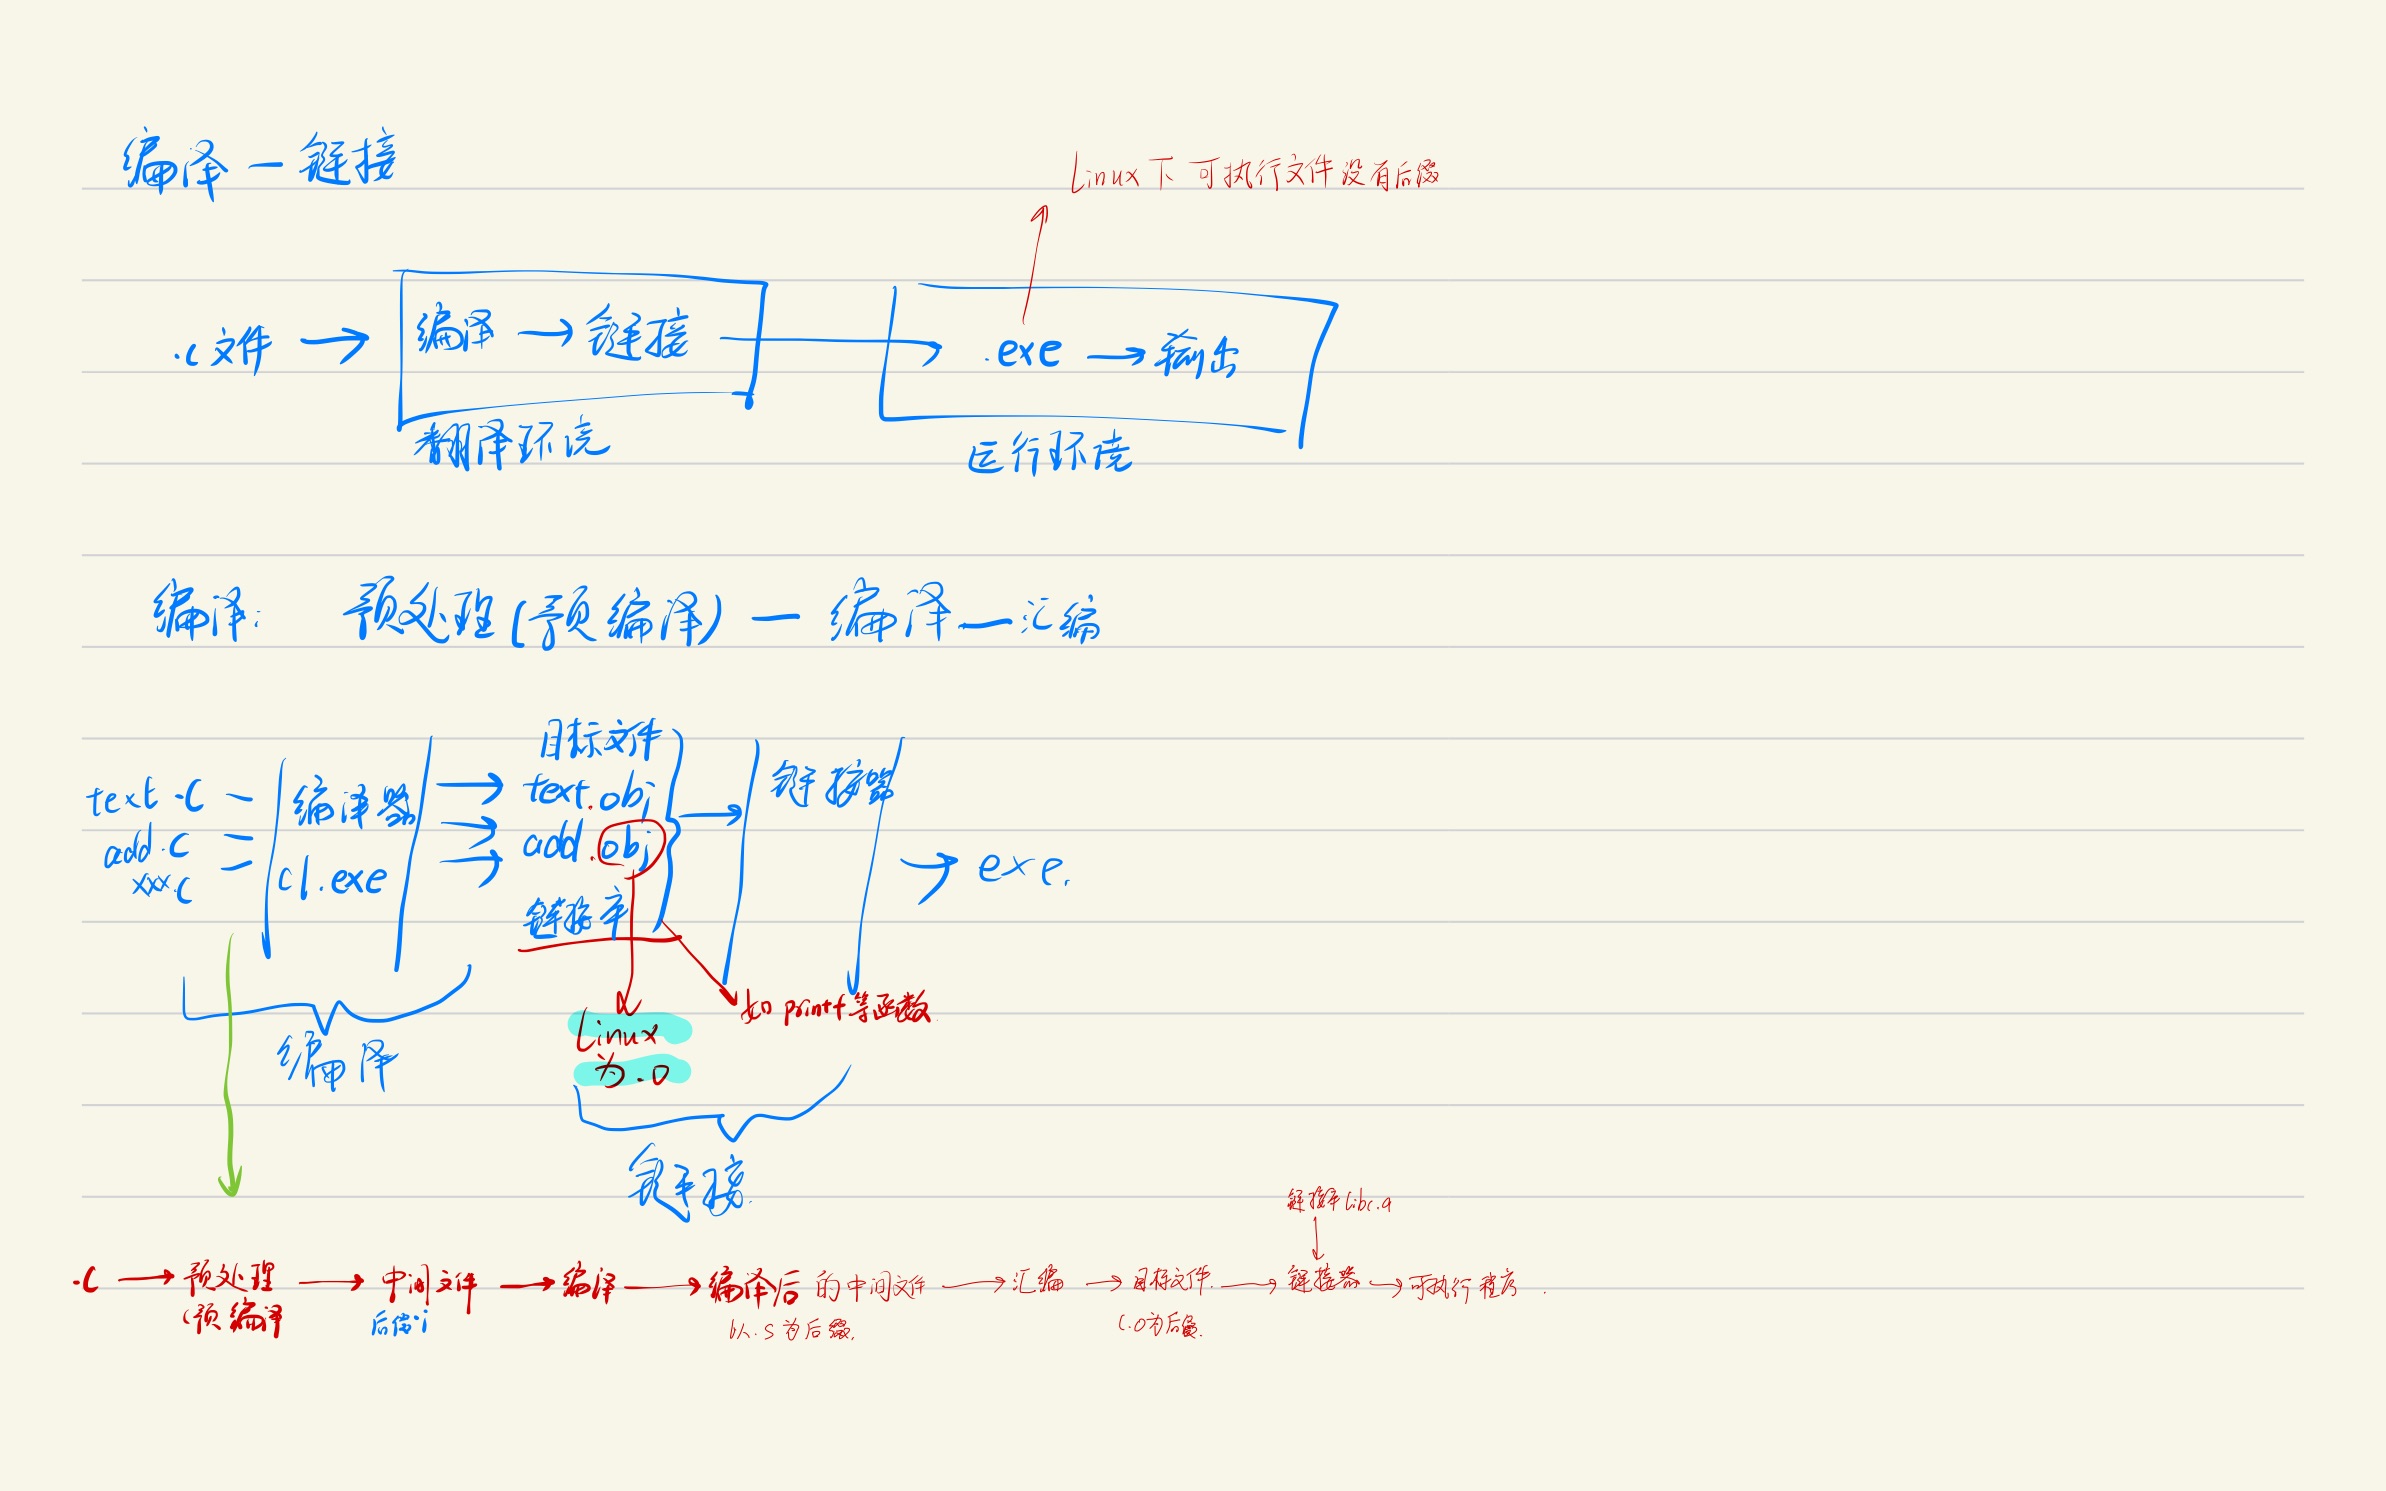 编译 — 链接
Linux 下 可执行文件没有后缀
.c 文件 → 编译 → 链接 → .exe → 输出
翻译环境
运行环境
编译: 预处理(预编译) — 编译 — 汇编
目标文件
text.c
编译器
text.obj
链接器
add.c
add.obj
xxx.c
cl.exe
→ exe.
链接库
如 printf 等函数
Linux
为.o
编译
链接.
链接库 libc.a
.c → 预处理 → 中间文件 → 编译 → 编译后的中间文件 → 汇编 → 目标文件. → 链接器 → 可执行程序.
(预编译
后缀.i
以.s为后缀.
(.o为后缀.